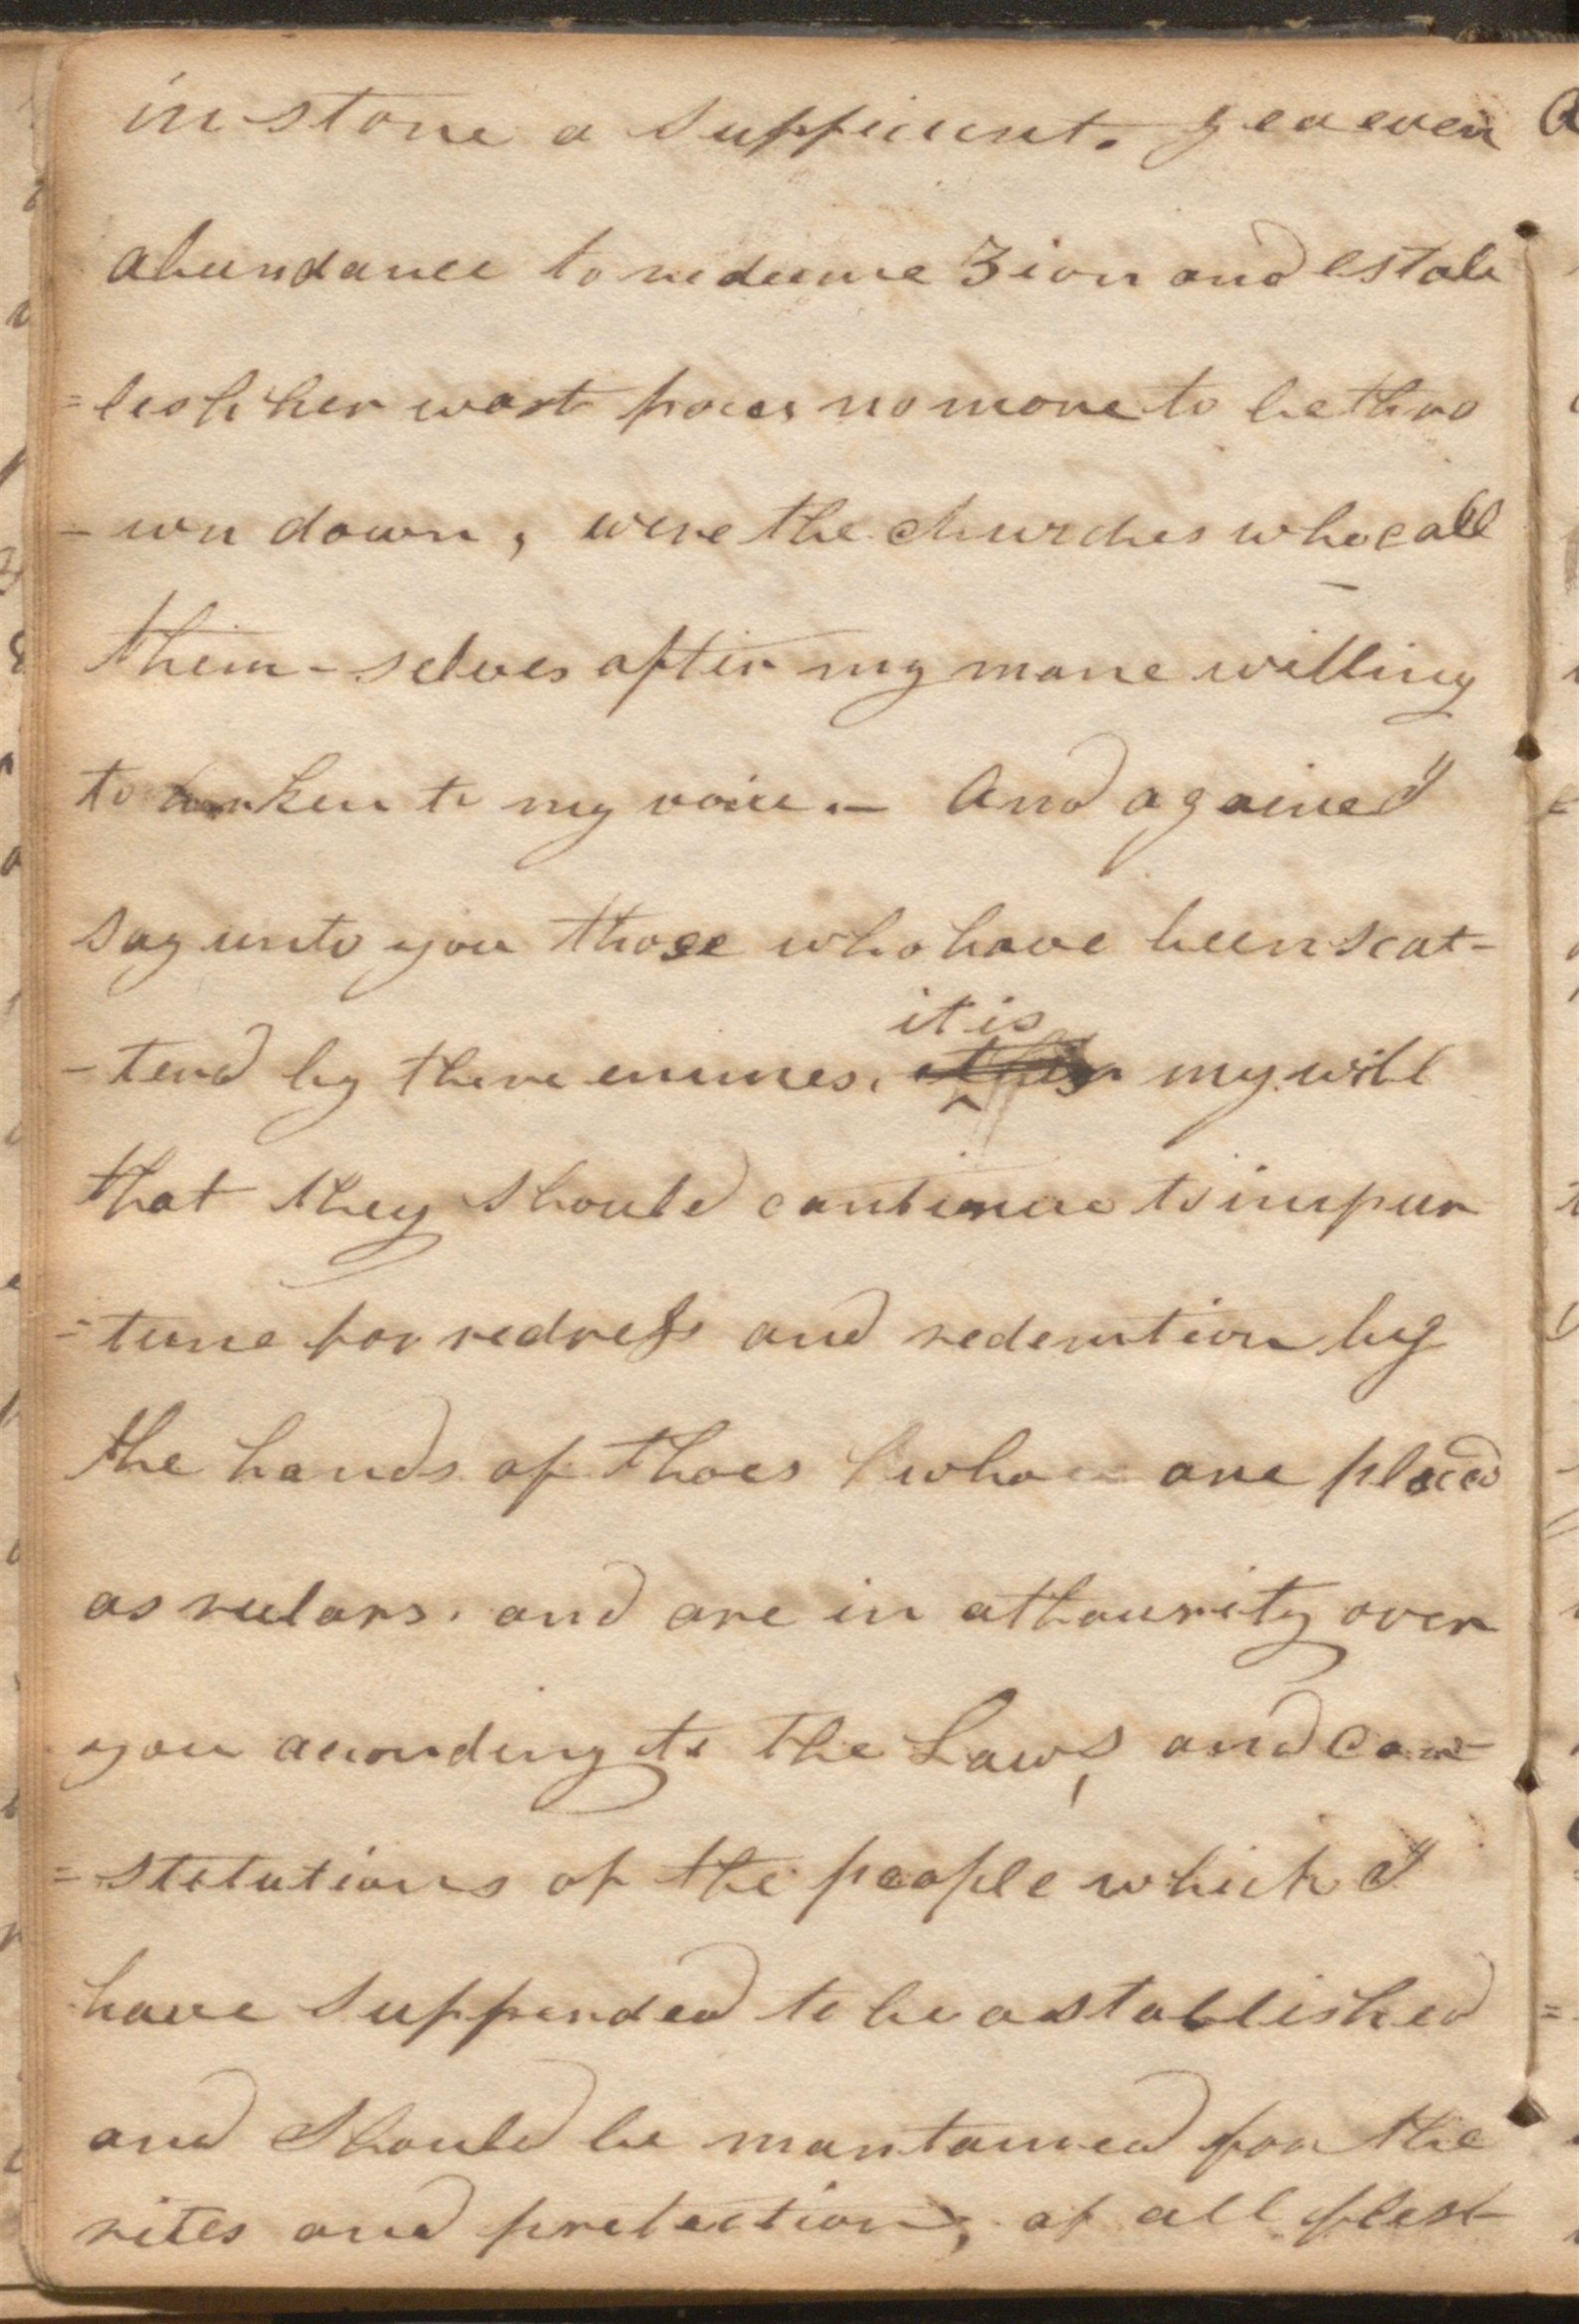 in stone a sufficient. yea even
abundance to redeeme Zion and estab
=lish her wast paces no more to be thro
-wn down, were the churches who call
them-selves after my mane willing
to harken to my voice.- And againe I
say unto you those who have been scat-
-terd by there enimes, it is my will
that they should continue to impur
-tune for redress and redemtion by
the hands of thoes who are placed
as rulars. and are in athourity over
you acording to the Laws, and Con-
=stitutions of the people which I
have supperded to be astablished
and should be mantained for the
rites and protection, of all flesh